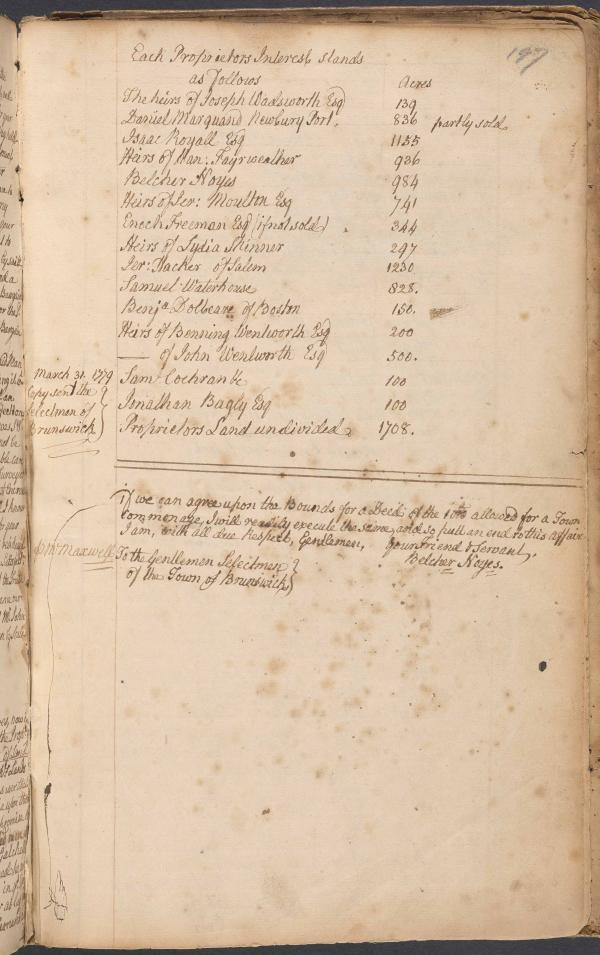 197
Each Proprietors Interest stands
as follows Acres
The heirs of Joseph Wadsworth Esq 139
Daniel Marquand Newbury Port. 836 partly sold
Isaac Royall Esq 1155
Heirs of Nan: Fayrweather 936
Belcher Noyes 984
Heirs of Jer: Moulton Esq 741
Enoch Freeman Esq (if not sold) 344
Heirs of Lydia Skinner 297
Jer: Hacker of Salem 1230
Samuel Waterhouse 828.
Benja Dolbeare of Boston 150.
Heirs of Benning Wentworth Esq 200
—— of John Wentworth Esq 500.
Saml Cochran &c 100
Jonathan Bagly Esq 100
Proprietors Land undivided 1708.
March 31. 1779
Copy sent the
Selectmen of
Brunswick
if we can agree upon the Bounds for a Deed of the allowed for a Town
Commonage, I will readily execute the same, and so put an end to this affair
I am, with all due Respect, Gentlemen, Your Friend & Servant,
Belcher Noyes.
Maxwell
To the Gentlemen Selectmen
of the Town of Brunswick